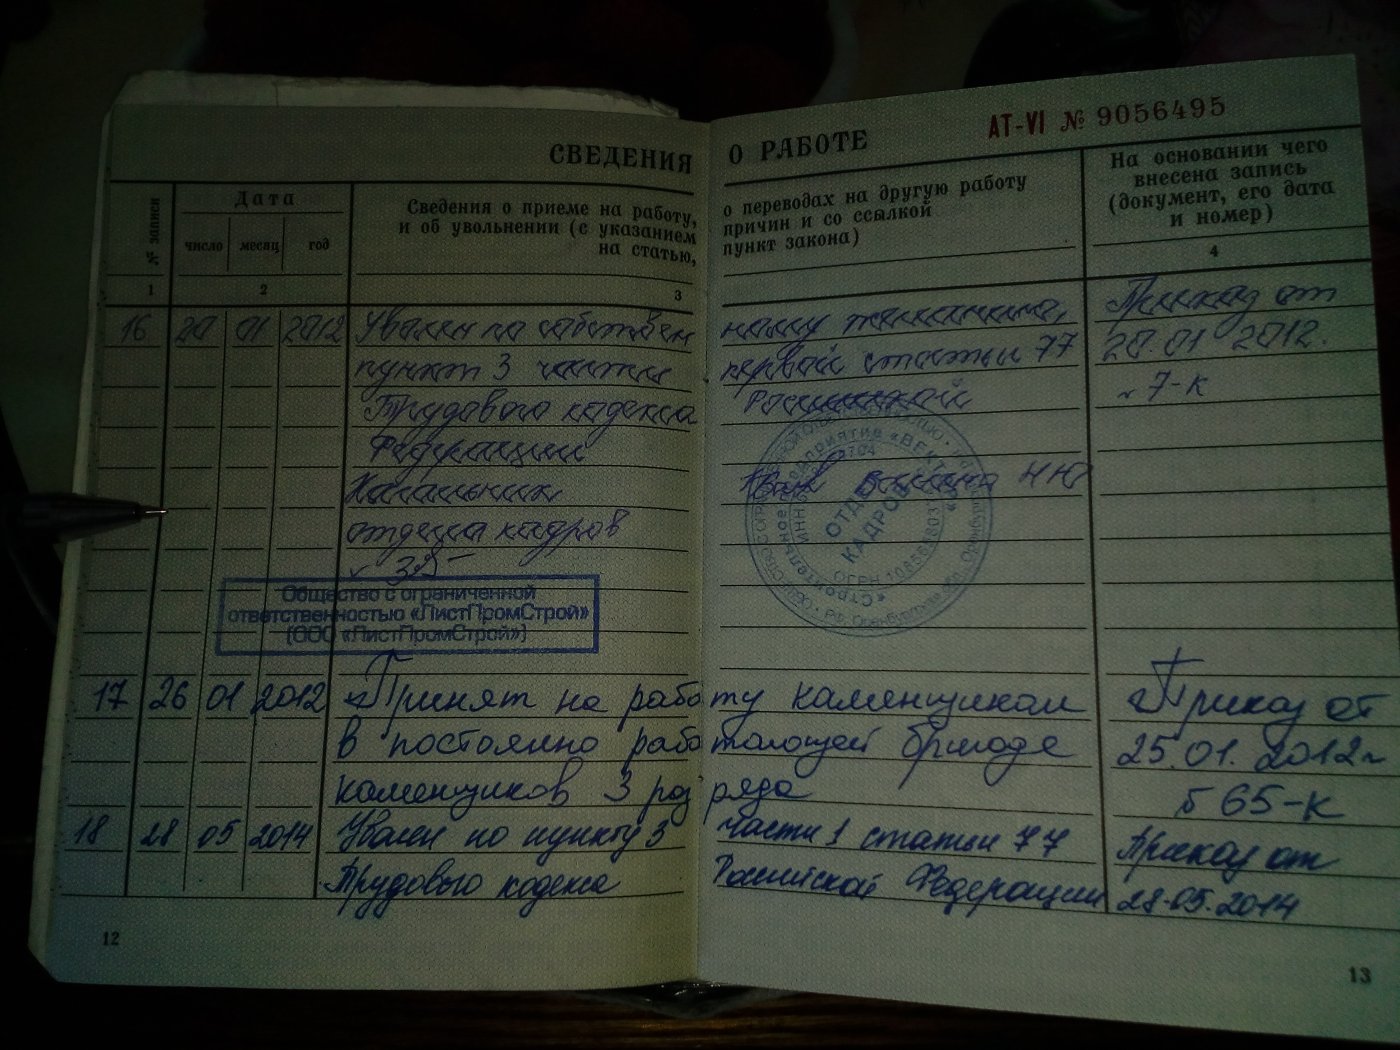 СВЕДЕНИЯ О РАБОТЕ AT-VI № 9056495
№ записи
Дата
число месяц год
Сведения о приеме на работу, о переводах на другую работу
и об увольнении (с указанием причин и со ссылкой
на статью, пункт закона)
На основании чего
внесена запись
(документ, его дата
и номер)
1 2 3 4
16 20 01 2012 Уволен по собствен ному желанию, Приказ от
пункт 3 части первой статьи 77 20.01 2012.
Трудового кодекса Российской 7-к
Федерации
Начальник
отдела кадров
ОТДЕЛ
КАДРОВ
Общество с ограниченной
ответственностью «ЛистПромСтрой»
(ООО «ЛистПромСтрой»)
17 26 01 2012 Принят на рабо ту каменщиком Приказ от
в постоянно рабо тающей бригаде 25.01.2012г
каменщиков 3 раз ряда 65-к
18 28 05 2014 Уволен по пункту 3 части 1 статьи 77 Приказ от
Трудового кодекса Российской Федерации 28.05.2014
12 13